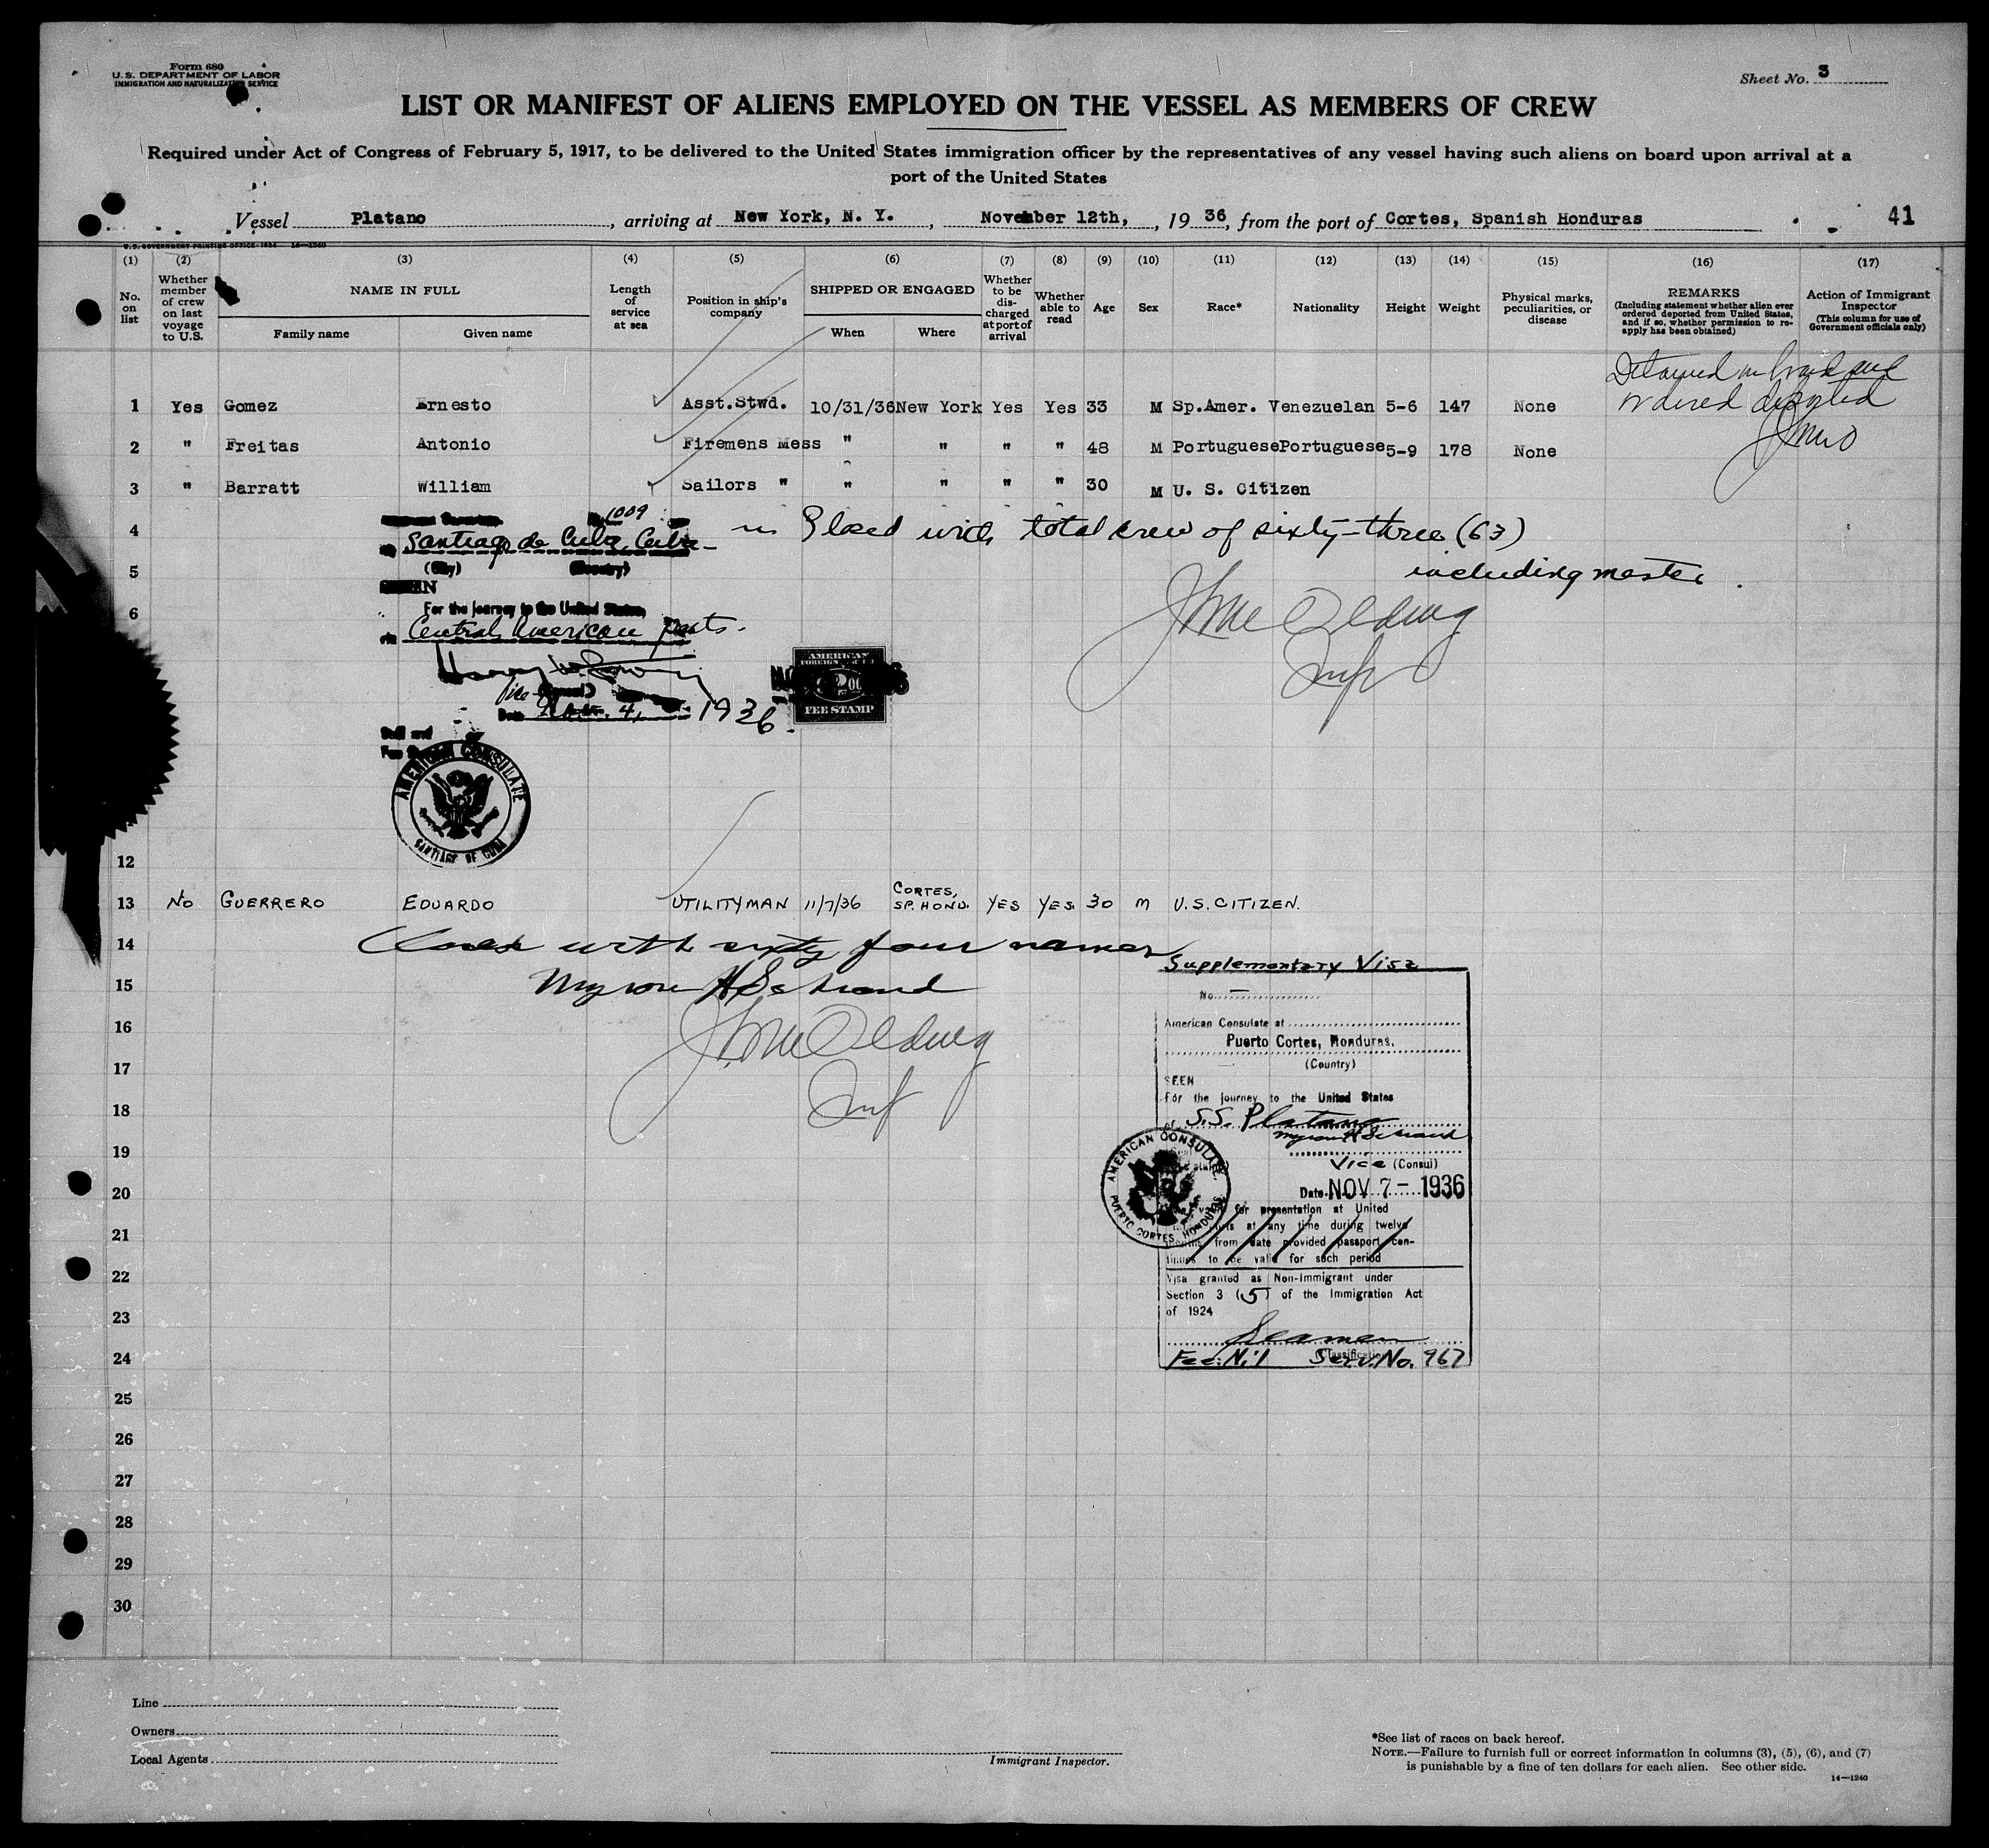 Form 680
U. S. DEPARTMENT OF LABOR
IMMIGRATION AND NATURALIZATION SERVICE
Sheet No. 3
LIST OR MANIFEST OF ALIENS EMPLOYED ON THE VESSEL AS MEMBERS OF CREW
Required under Act of Congress of February 5, 1917, to be delivered to the United States immigration officer by the representatives of any vessel having such aliens on board upon arrival at a
port of the United States
Vessel Platano, arriving at New York, N. Y., November 12th, 1936, from the port of Cortes, Spanish Honduras 41
U.S. GOVERNMENT PRINTING OFFICE: 1934 14—1240
(1) (2) (3) (4) (5) (6) (7) (8) (9) (10) (11) (12) (13) (14) (15) (16) (17)
No. on list
Whether member of crew on last voyage to U.S.
NAME IN FULL
Family name
Given name
Length of service at sea
Position in ship's company
SHIPPED OR ENGAGED
When
Where
Whether to be discharged at port of arrival
Whether able to read
Age
Sex
Race*
Nationality
Height
Weight
Physical marks, peculiarities, or disease
REMARKS
(Including statement whether alien ever ordered deported from United States, and if so, whether permission to reapply has been obtained)
Action of Immigrant Inspector
(This column for use of Government officials only)
1 Yes Gomez Ernesto Asst.Stwd. 10/31/36 New York Yes Yes 33 M Sp.Amer. Venezuelan 5-6 147 None
Detained on board and
ordered deported
2 " Freitas Antonio Firemens Mess " " " " 48 M Portuguese Portuguese 5-9 178 None
3 " Barratt William Sailors " " " " " 30 M U. S. Citizen
No. 1009
4 Santiago de Cuba, Cuba
Closed with total crew of sixty-three (63)
(City) (Country)
5 including master.
SEEN
6 For the journey to the United States
via Central American ports.
Vice (Consul)
Date 4, 1936.
AMERICAN
FOREIGN SERVICE
FEE STAMP
Seal and
AMERICAN CONSULATE
SANTIAGO DE CUBA
12
13 No GUERRERO EDUARDO UTILITYMAN 11/7/36 CORTES, SP. HOND. YES YES. 30 M U.S. CITIZEN.
14 Closed with sixty four names
Supplementary Visa
15 Myron H Schraud
No. —
16
American Consulate at
Puerto Cortes, Honduras.
17 (Country)
SEEN
For the journey to the United States
18 S.S. Platano
Myron H Schraud
19 Vice (Consul)
AMERICAN CONSULATE
PUERTO CORTES, HONDURAS
20 Date NOV 7 - 1936
for presentation at United
21 at any time during twelve
from date provided passport con-
tinues to be valid for such period
22 Visa granted as Non-Immigrant under
Section 3 (5) of the Immigration Act
23 of 1924
Seamen
24 (Classification)
Fee: Nil Serv. No. 967
25
26
27
28
29
30
Line
Owners
Local Agents
Immigrant Inspector.
*See list of races on back hereof.
NOTE.—Failure to furnish full or correct information in columns (3), (5), (6), and (7)
is punishable by a fine of ten dollars for each alien. See other side.
14—1240